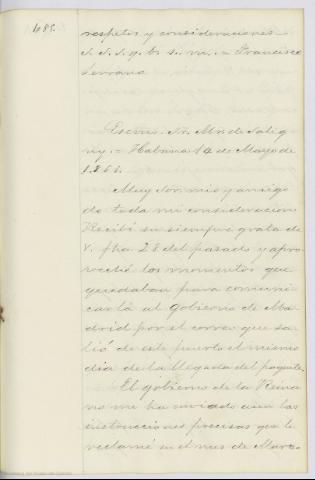 485.
respetos y consideraciones
S. S. S. q. b. s. m. = Francisco
Serrano
Escmo. Sr. Mr. de Salig
ny. = Habana 14 de Mayo de
Muy Sor. mio y amigo
de toda mi consideracion
Recibí su siempre grata de
V. fha 28 del pasado y apro
veché los momentos que
quedaban para comuni
carla al Gobierno de Ma
drid por el correo que sa
lió de este puerto el mismo
dia de la llegada del paquete.
El gobierno de la Reina
no me ha enviado aun las
instrucciones precisas que le
reclamé en el mes de Marzo